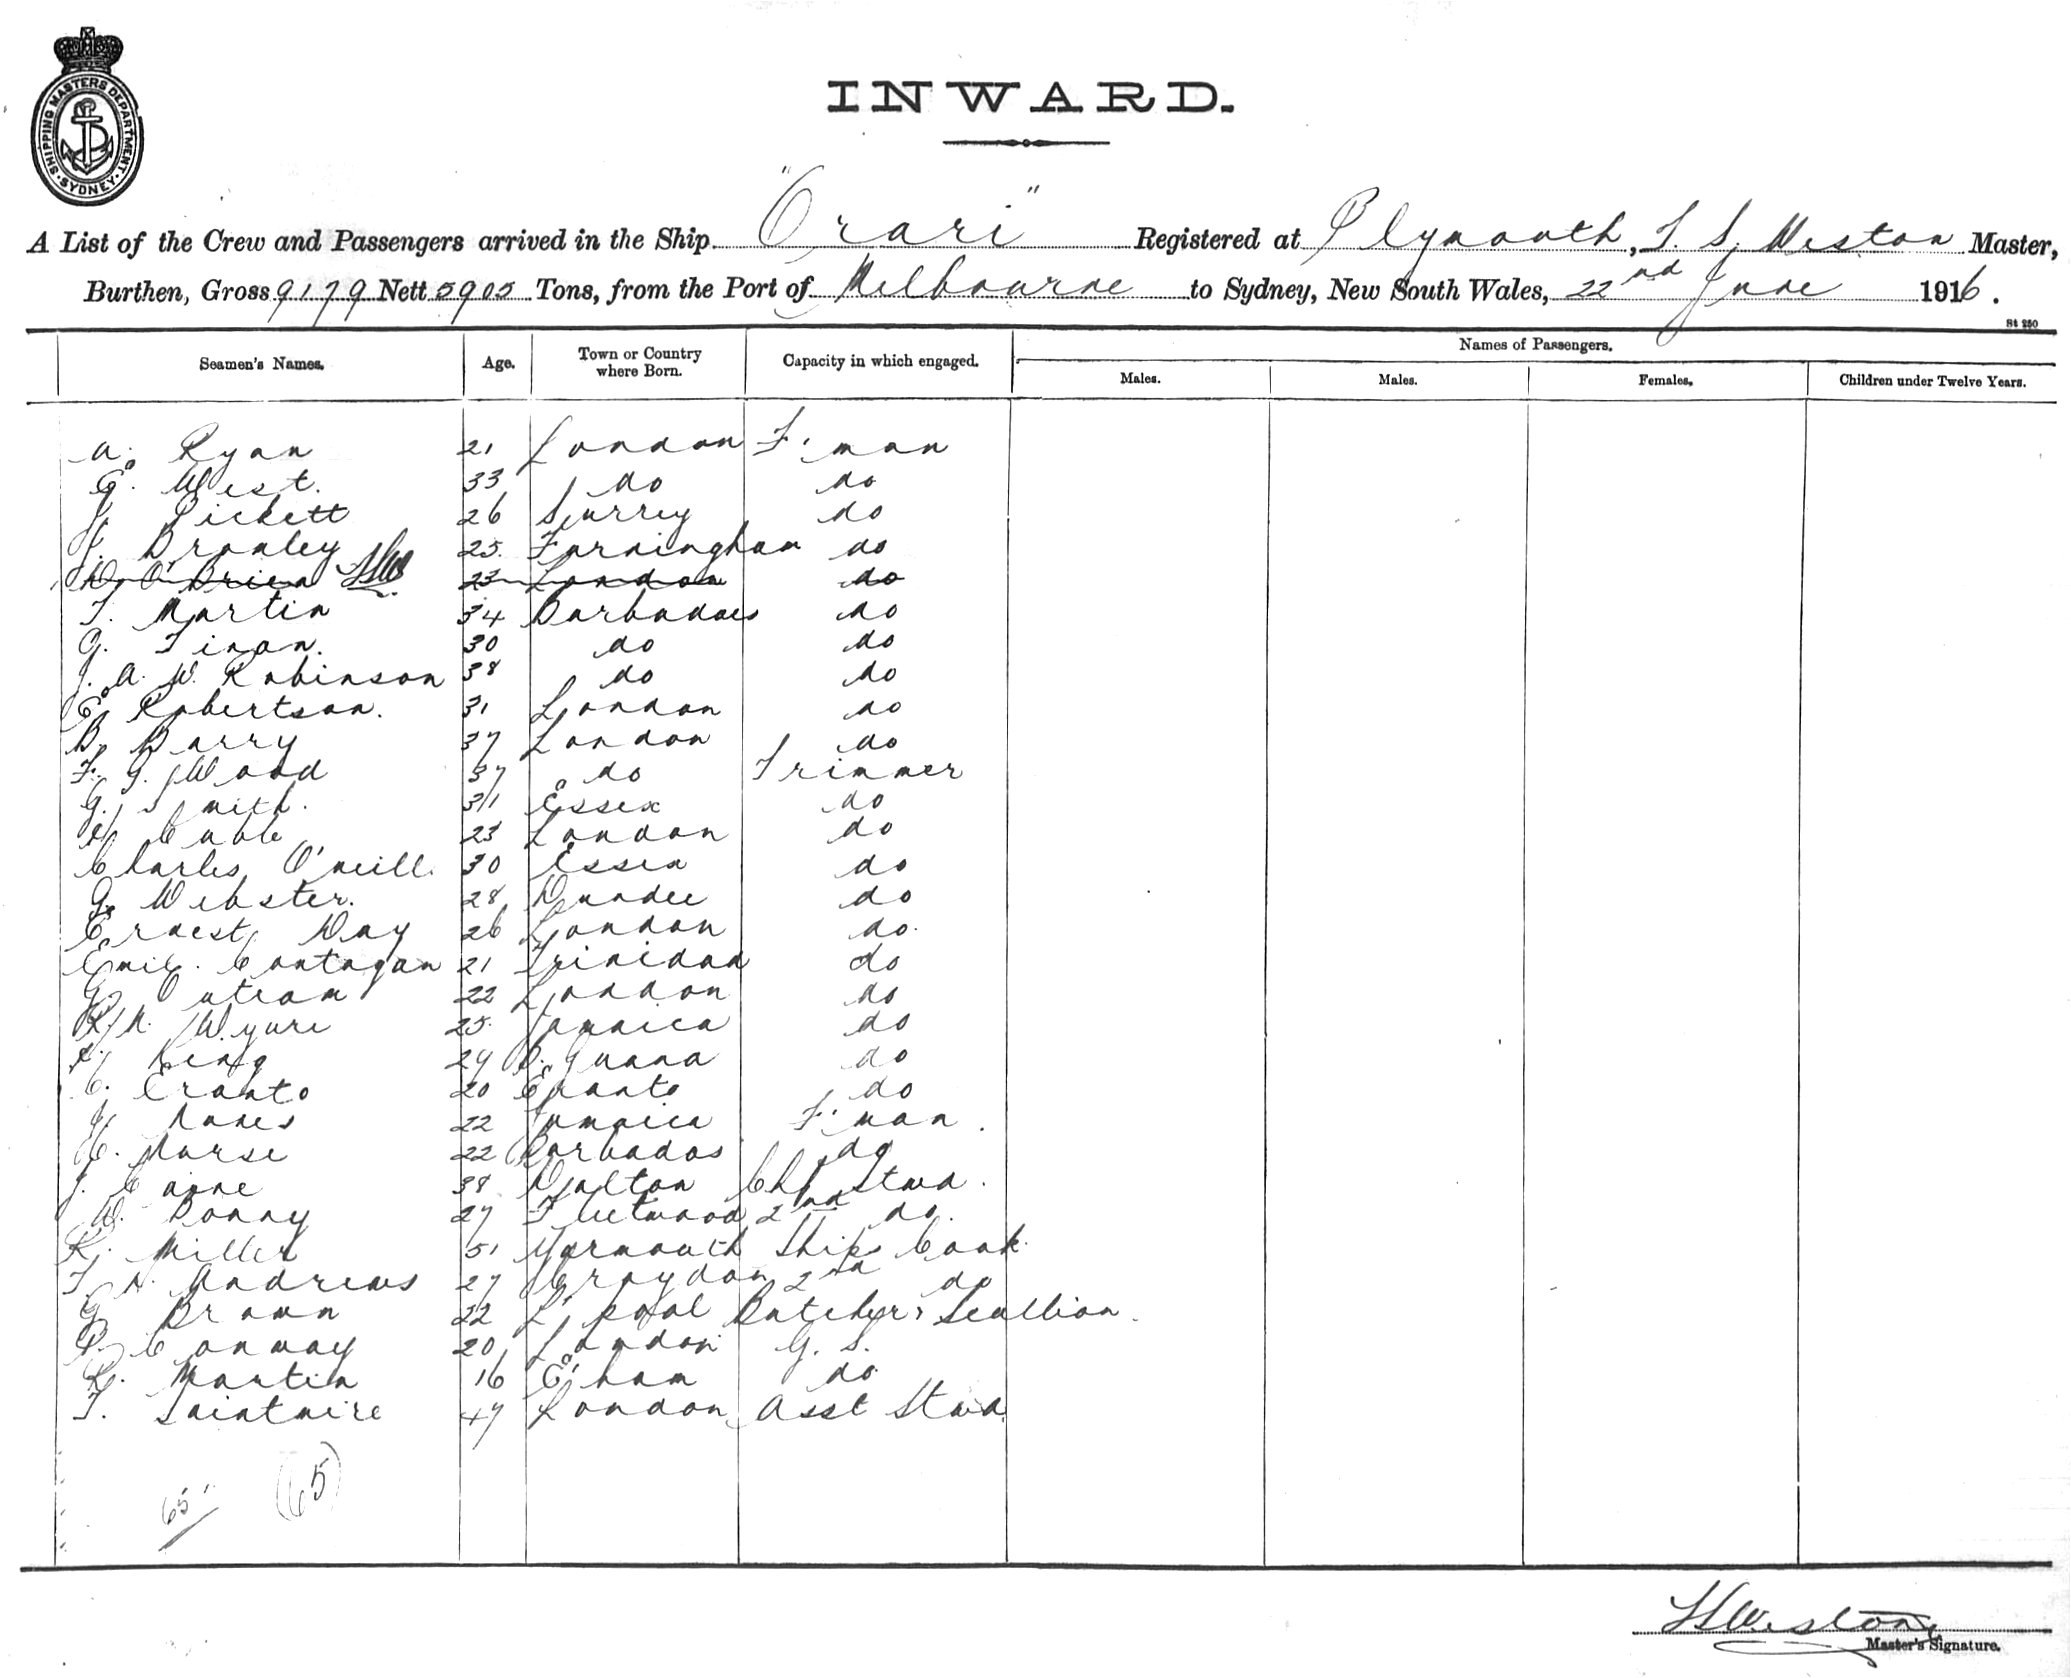 SHIPPING MASTERS DEPARTMENT SYDNEY
INWARD.
A List of the Crew and Passengers arrived in the Ship "Orari" Registered at Plymouth, T. S. Weston Master,
Burthen, Gross 9179 Nett 5905 Tons, from the Port of Melbourne to Sydney, New South Wales, 22nd June 1916.
St 250
Seamen's Names. Age. Town or Country where Born. Capacity in which engaged. Names of Passengers.
Males. Males. Females. Children under Twelve Years.
A. Ryan 21 London F'man
G. West. 33 do do
J. Pickett 26 Surrey do
J. Bromley 25 Farningham do
D. O'Brien 23 London do
T. Martin 34 Barbadoes do
G. 30 do do
J. A. W. Robinson 38 do do
E. Robertson. 31 London do
B. Barry 37 London do
F. G. Wood 37 do Trimmer
G. Smith. 31 Essex do
23 London do
Charles O'neill. 30 Essex do
G. Webster. 28 Dundee do
Ernest Day 26 London do.
Emil. 21 Trinidad do
G. Outram 22 London do
25 Jamaica do
King do
C. Eranto 20 do
22 Jamaica F'man.
C. Nurse 22 Barbados do
J. 38 Dalton Chf Stwd.
W. Bonny 27 Fleetwood 2nd do.
R. Miller 51 Yarmouth Ships Cook.
T. H. Andrews 27 Croydon 2nd do
G. Brown 22 L'pool Butcher & Scullion.
P. Conway 20 London G. S.
R. Martin 16 E'ham do
T. Saintmire 47 London Asst Stwd
65 (65)
T S Weston
Master's Signature.